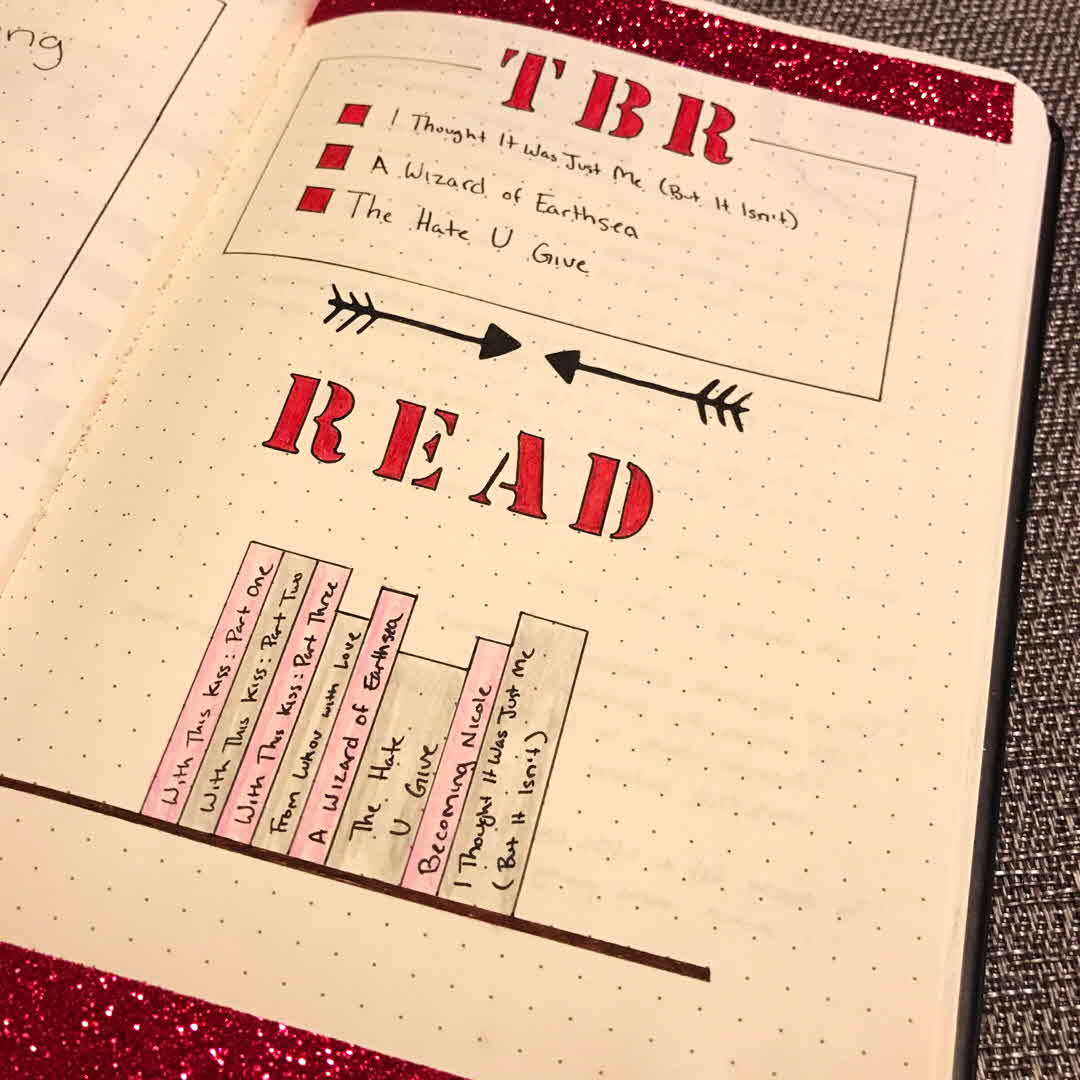 ng
TBR
I Thought It Was Just Me (But It Isn't)
A Wizard of Earthsea
The Hate U Give
READ
With This Kiss: Part One
With This Kiss: Part Two
With This Kiss: Part Three
From Lukov with Love
A Wizard of Earthsea
The Hate
U Give
Becoming Nicole
I Thought It Was Just Me
(But It Isn't)